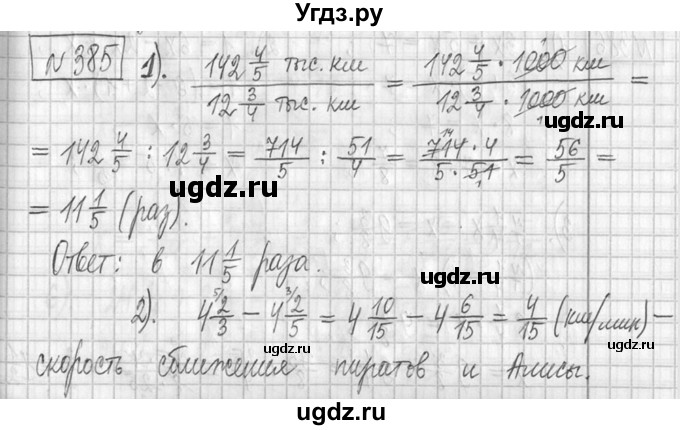 Угдз.ру
№385 1). 142 4/5 тыс. км / 12 3/4 тыс. км = 142 4/5 · 1000 км / 12 3/4 · 1000 км =
ugdz.ru
= 142 4/5 : 12 3/4 = 714/5 : 51/4 = 714 · 4 / 5 · 51 = 56/5 =
ugdz.ru
ugdz.ru
= 11 1/5 (раз).
Ответ: в 11 1/5 раза.
ugdz.ru
2). 4 2/3 − 4 2/5 = 4 10/15 − 4 6/15 = 4/15 (км/мин) −
скорость сближения пиратов и Алисы.
ugdz.ru
ugdz.ru